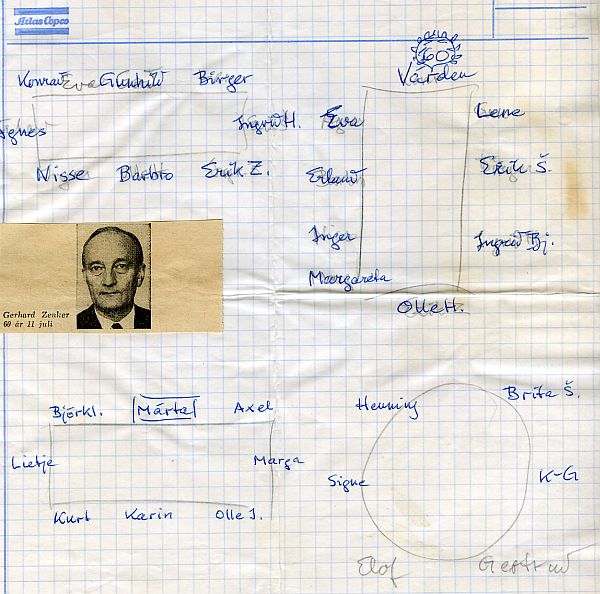 Atlas Copco
60
Värden
Konrad Eva Gunhild Birger
Agnes Ingrid H.
Nisse Barbro Erik Z.
Eva Lene
Erland Erik Š.
Inger Ingrid Bj.
Margareta
Olle H.
Gerhard Zenker
60 år 11 juli
Björkl. Märta Axel
Lietje Marga
Kurt Karin Olle J.
Henning Brita Š.
Signe K-G
Elof Gertrud